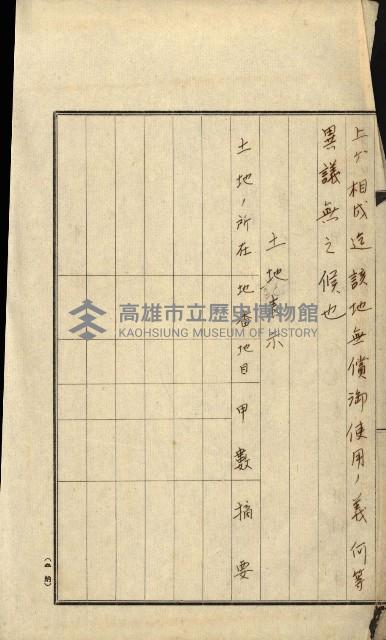 上ケ相成迄該地無償御使用ノ義何等
異議無之候也
土地表示
土地ノ所在 地番 地目 甲數 摘要
高雄市立歷史博物館
KAOHSIUNG MUSEUM OF HISTORY